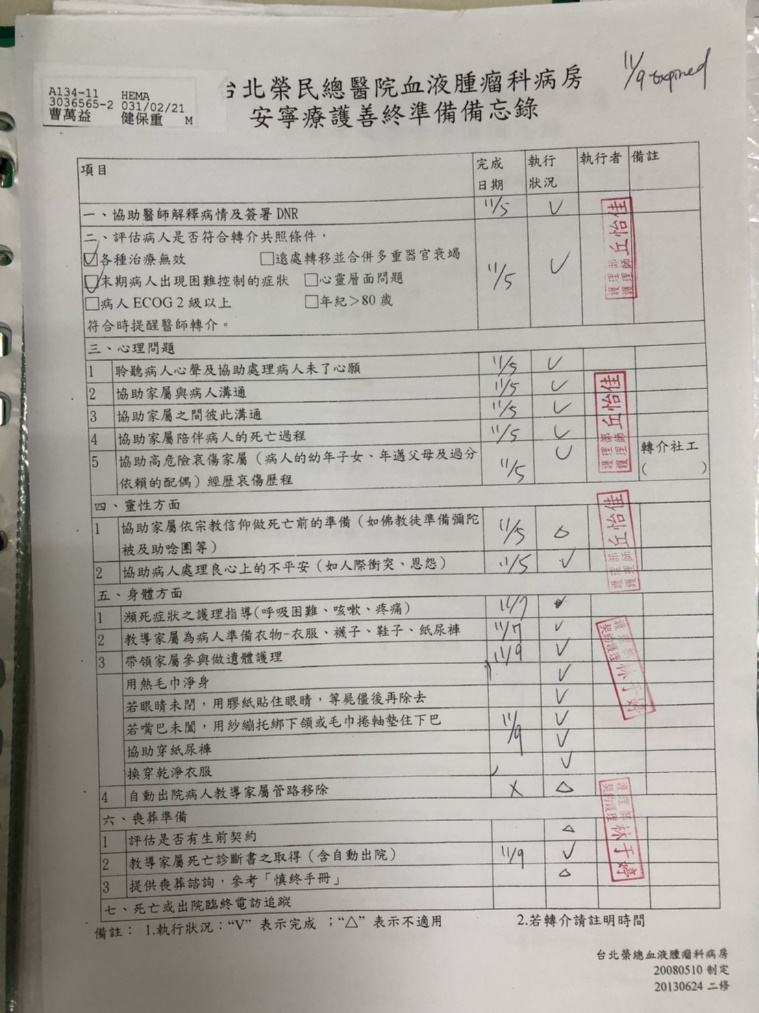 A134-11 HEMA
3036565-2 031/02/21
曹萬益 健保重 M
台北榮民總醫院血液腫瘤科病房
11/9 expired
安寧療護善終準備備忘錄
項目 完成日期 執行狀況 執行者 備註
一、協助醫師解釋病情及簽署 DNR 11/5 V
二、評估病人是否符合轉介共照條件，
☑各種治療無效 □遠處轉移並合併多重器官衰竭
☑末期病人出現困難控制的症狀 □心靈層面問題 11/5 V
□病人 ECOG 2 級以上 □年紀＞80 歲
符合時提醒醫師轉介。
護理部 護理師 丘怡佳
三、心理問題
1 聆聽病人心聲及協助處理病人未了心願 11/5 V
2 協助家屬與病人溝通 11/5 V
3 協助家屬之間彼此溝通 11/5 V
4 協助家屬陪伴病人的死亡過程 11/5 V
護理部 護理師 丘怡佳
5 協助高危險哀傷家屬（病人的幼年子女、年邁父母及過分 11/5 V 轉介社工
依賴的配偶）經歷哀傷歷程 ( )
四、靈性方面
1 協助家屬依宗教信仰做死亡前的準備（如佛教徒準備彌陀 11/5 △
被及助唸團等）
2 協助病人處理良心上的不平安（如人際衝突、恩怨） 11/5 V
護理部 護理師 丘怡佳
五、身體方面
1 瀕死症狀之護理指導(呼吸困難、咳嗽、疼痛) 11/7 V
2 教導家屬為病人準備衣物-衣服、襪子、鞋子、紙尿褲 11/7 V
3 帶領家屬參與做遺體護理 11/9 V
用熱毛巾淨身 V
若眼睛未閉，用膠紙貼住眼睛，等屍僵後再除去 V
若嘴巴未闔，用紗繃托綁下頷或毛巾捲軸墊住下巴 11/9 V
協助穿紙尿褲 V
換穿乾淨衣服 V
4 自動出院病人教導家屬管路移除 X △
六、喪葬準備
1 評估是否有生前契約 △
2 教導家屬死亡診斷書之取得（含自動出院） 11/9 V
3 提供喪葬諮詢，參考「慎終手冊」 △
七、死亡或出院臨終電訪追蹤
備註： 1.執行狀況：“V” 表示完成 ；“△” 表示不適用 2.若轉介請註明時間
台北榮總血液腫瘤科病房
20080510 制定
20130624 二修